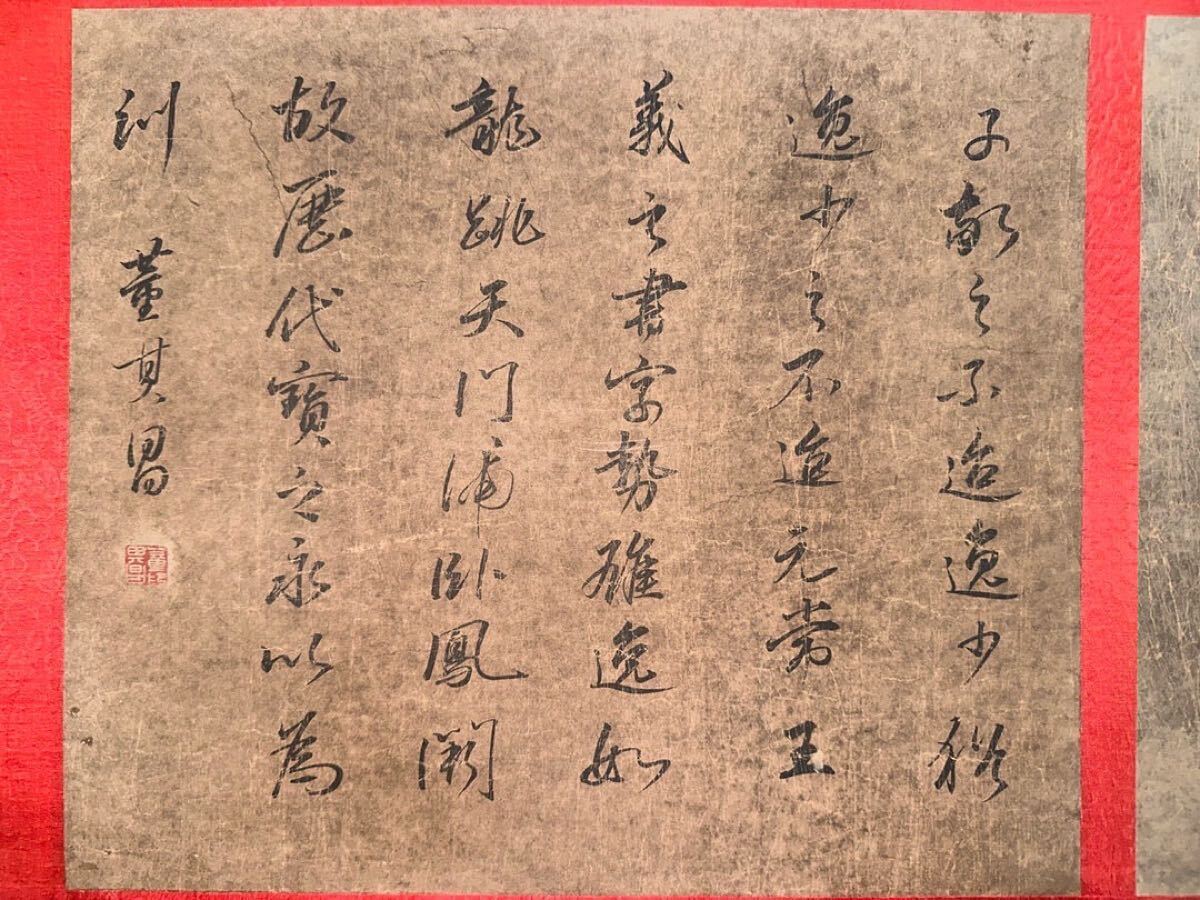 子敬之不迨逸少猶
逸少之不迨元常王
羲之書字勢雄逸如
龍跳天門虎臥鳳闕
故歷代寶之永以為
訓 董其昌